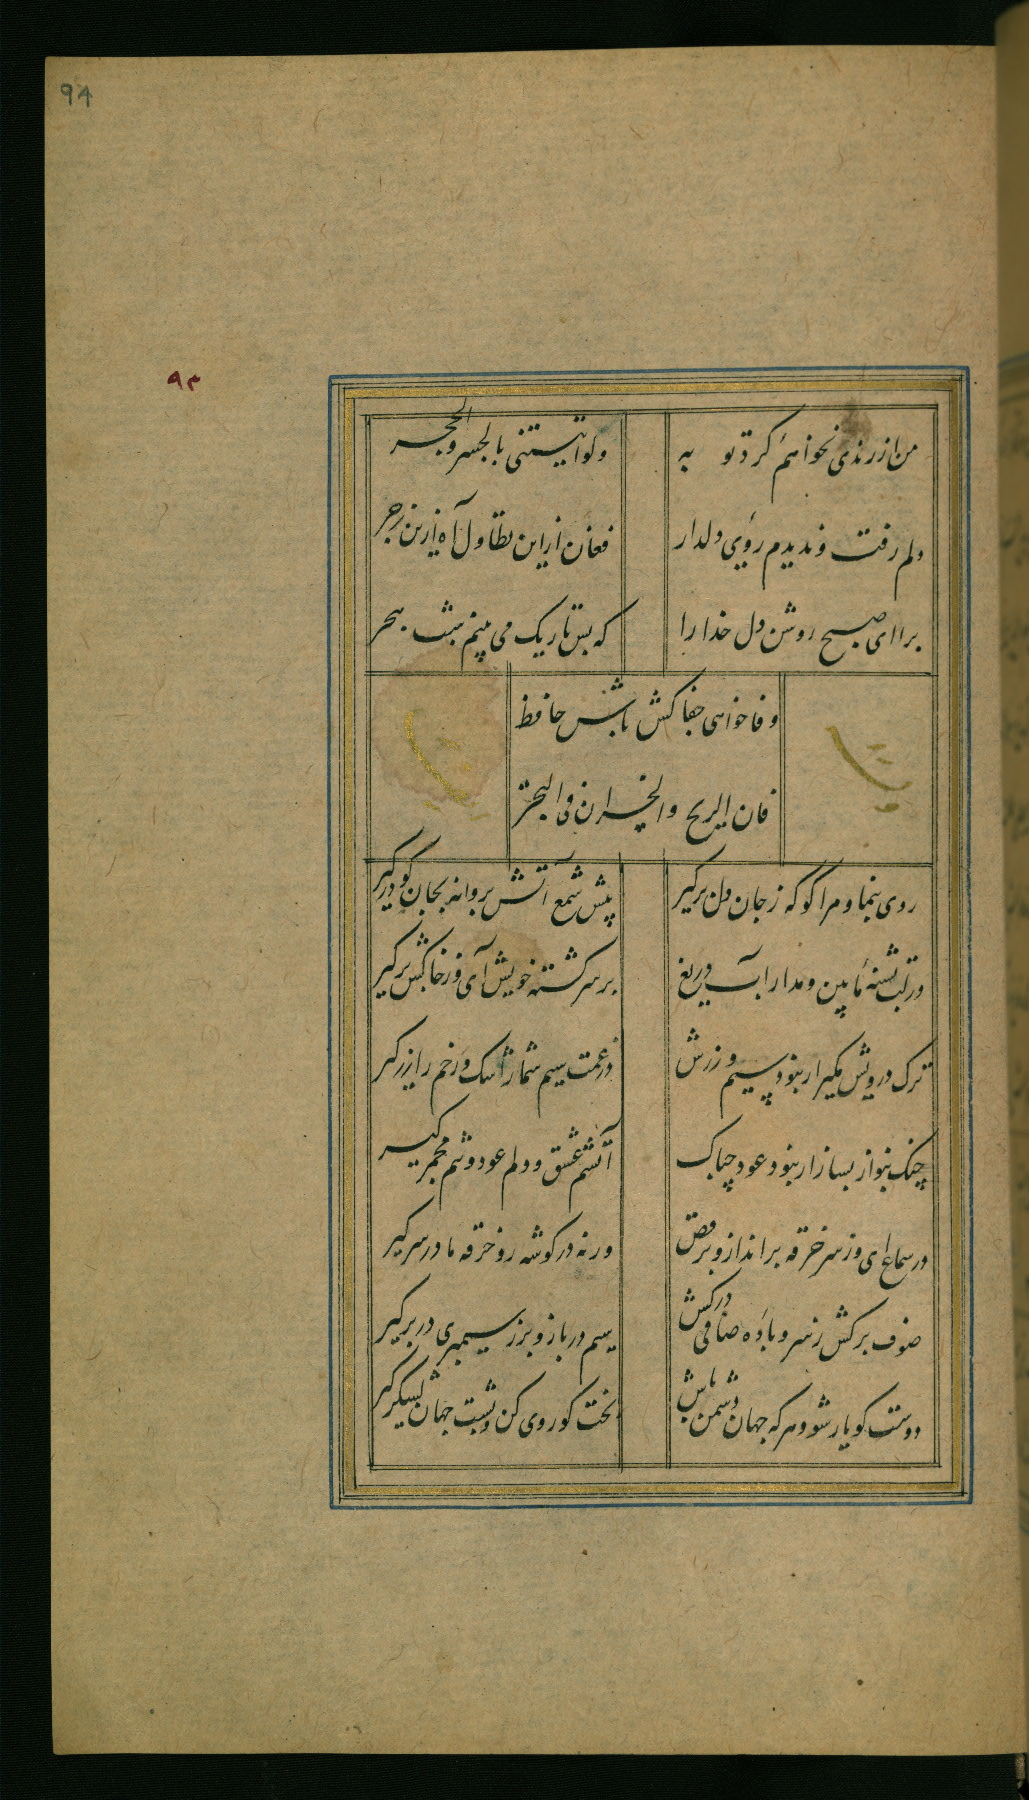 94
۹۳
من از رندی نخواهم کرد توبه
ولو آتیتنی بالجسر والحجر
دلم رفت و ندیدم روی دلدار
فغان از این تطاول آه ازین زجر
برا ای صبح روشن دل خدا را
که بس تاریک می بینم شب هجر
وفا خواهی جفا کش باش حافظ
فان الربح والخسران فی التجر
روی بنما و مرا گو که ز جان دل برگیر
پیش شمع آتش پروانه بجان گو درگیر
در لب تشنهٔ ما بین و مدار آب دریغ
بر سر کشته خویش آی و ز خاکش برگیر
ترک درویش مگیر ار نبود سیم و زرش
در غمت سیم شمار اشک و رخم را زر گیر
چنگ بنواز بساز ار نبود عود چه باک
آتشم عشق و دلم عود و تنم مجمر گیر
در سماع ای و ز سر خرقه برانداز و برقص
ورنه در گوشه رو خرقه ما در سر گیر
صوف برکش ز سر و باده صافی درکش
سیم درباز و بزر سیمبری در بر گیر
دوست گو یار شو و هر که جهان دشمن باش
بخت گو روی کن و پشت جهان لشکر گیر